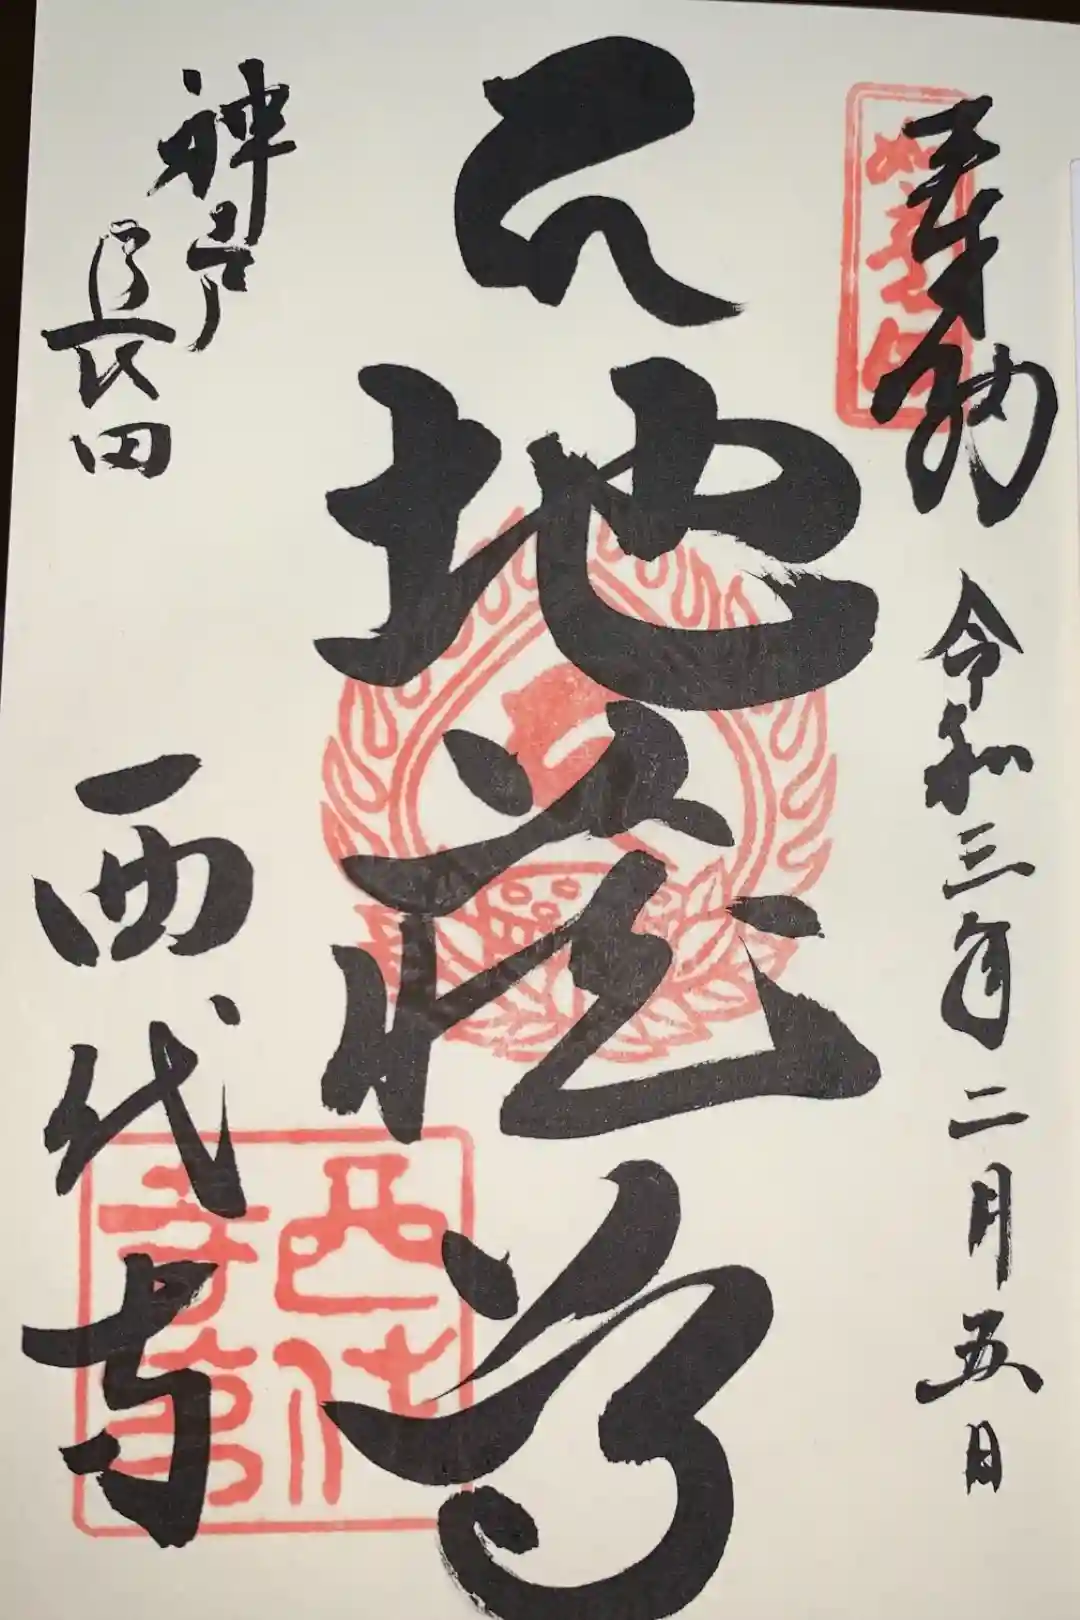 奉納 令和三年二月五日
地蔵尊
神戸
長田
西代寺
西代
寺